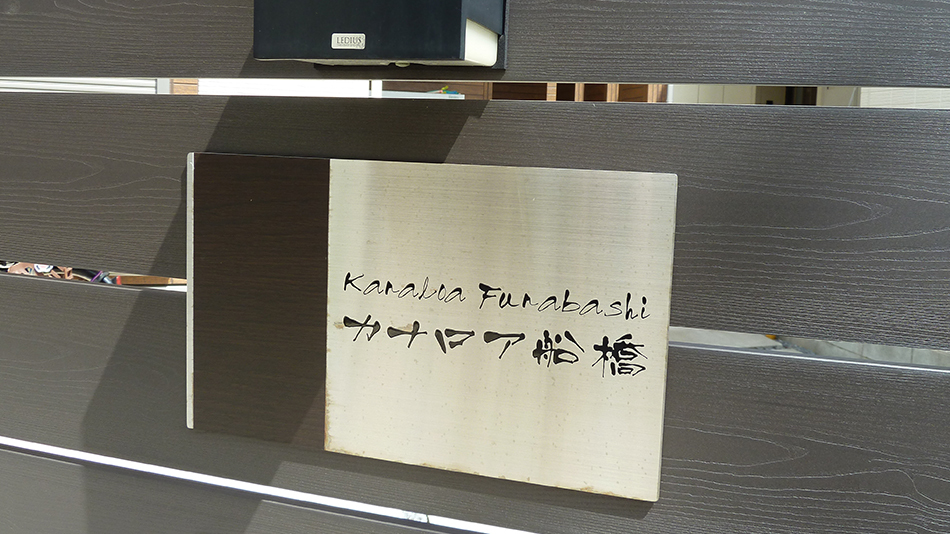 LEDIUS
Kanaloa Funabashi
カナロア船橋